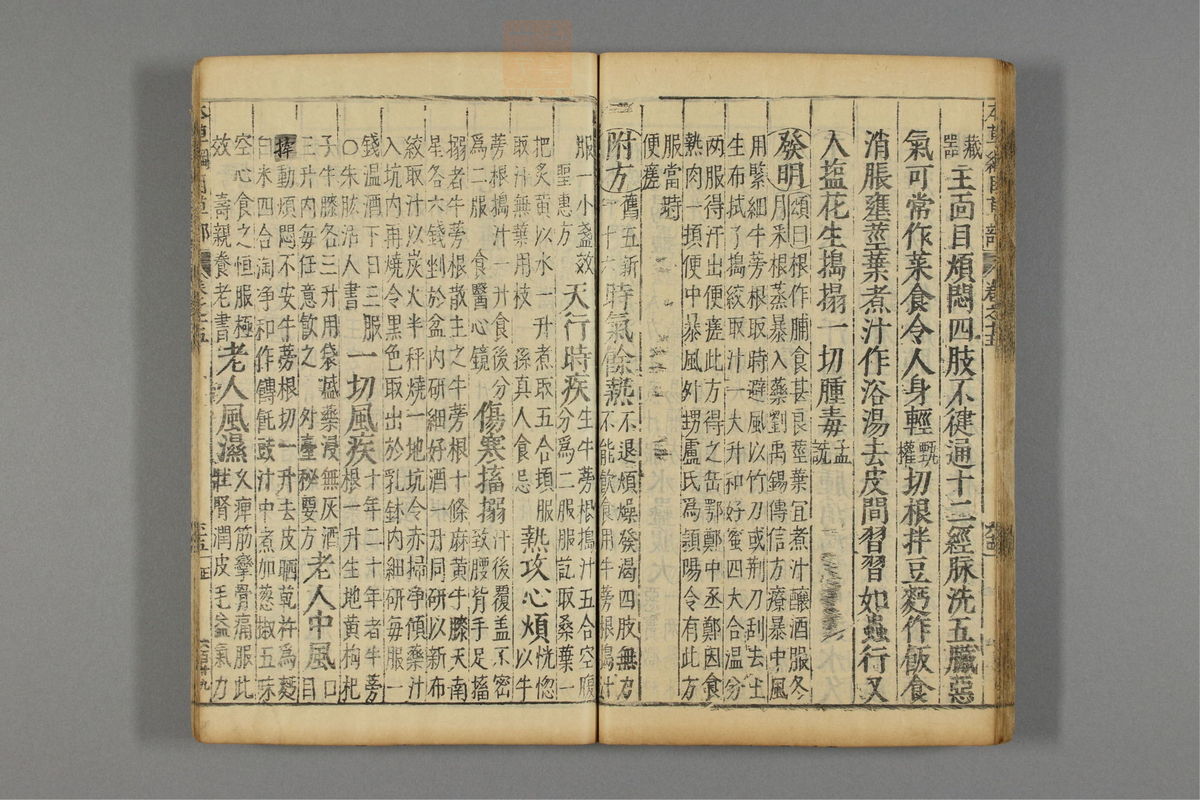 藏器
主面目煩悶四肢不健通十二經脉洗五臟惡
氣可常作菜食令人身輕甄權切根拌豆麪作飯食
消脹壅莖葉煮汁作浴湯去皮間習習如蟲行又
入塩花生搗搨一切腫毒孟詵
發明頌曰根作脯食甚良莖葉宜煮汁釀酒服冬
月采根蒸暴入藥劉禹錫傳信方療暴中風
用緊細牛蒡根取時避風以竹刀或荆刀刮去土
生布拭了搗絞取汁一大升和好蜜四大合温分
两服得汗出便瘥此方得之岳鄂鄭中丞鄭因食
熱肉一頓便中暴風外甥盧氏爲潁陽令有此方
服當時
便瘥
附方舊五新十六時氣餘熱不退煩燥發渴四肢無力
不能飲食用牛蒡根搗汁
服一小盞效
聖惠方天行時疾生牛蒡根搗汁五合空腹
分爲二服服訖取桑葉一
把炙黄以水一升煮取五合頓服
取汁無葉用枝 孫真人食忌熱攻心煩恍惚
以牛
蒡根搗汁一升食後分
爲二服 食醫心鏡傷寒搐搦汗後覆盖不密
致腰背手足搐
搦者牛蒡根散主之牛蒡根十條麻黄牛膝天南
星各六錢剉於盆内研細好酒一升同研以新布
絞取汁以炭火半秤燒一地坑令赤掃净傾藥汁
入坑内再燒令黑色取出於乳鉢内細研每服一
錢温酒下日三服
○朱肱活人書一切風疾十年二十年者牛蒡
根一升生地黄枸杞
子牛膝各三升用袋盛藥浸無灰酒
三升内每任意飲之 外臺秘要方老人中風口
目
動煩悶不安牛蒡根切一升去皮晒乾杵爲麪
白米四合淘净和作餺飥豉汁中煮加葱椒五味
空心食之恒服極
效 壽親養老書老人風濕久痺筋攣骨痛服此
壯腎潤皮毛益氣力